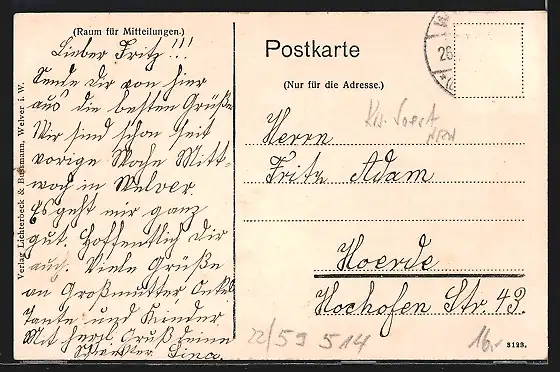 (Raum für Mitteilungen.)
Lieber Fritz!!!
Sende dir von hier
aus die besten Grüße
Wir sind schon seit
vorige Woche Mitt-
woch in Welver.
Es geht mir ganz
gut. Hoffentlich dir
auch. Viele Grüße
an Großmutter Onkel
Tante und Kinder.
Mit herzl. Gruß deine
Schwester Lina.
Verlag Lichterbeck & Bußmann, Welver i. W.
Postkarte
(Nur für die Adresse.)
26.
Krs. Soest
NRW
Herrn
Fritz Adam
Hoerde
Hochofen Str. 43.
22/59 514
16.-
3123.